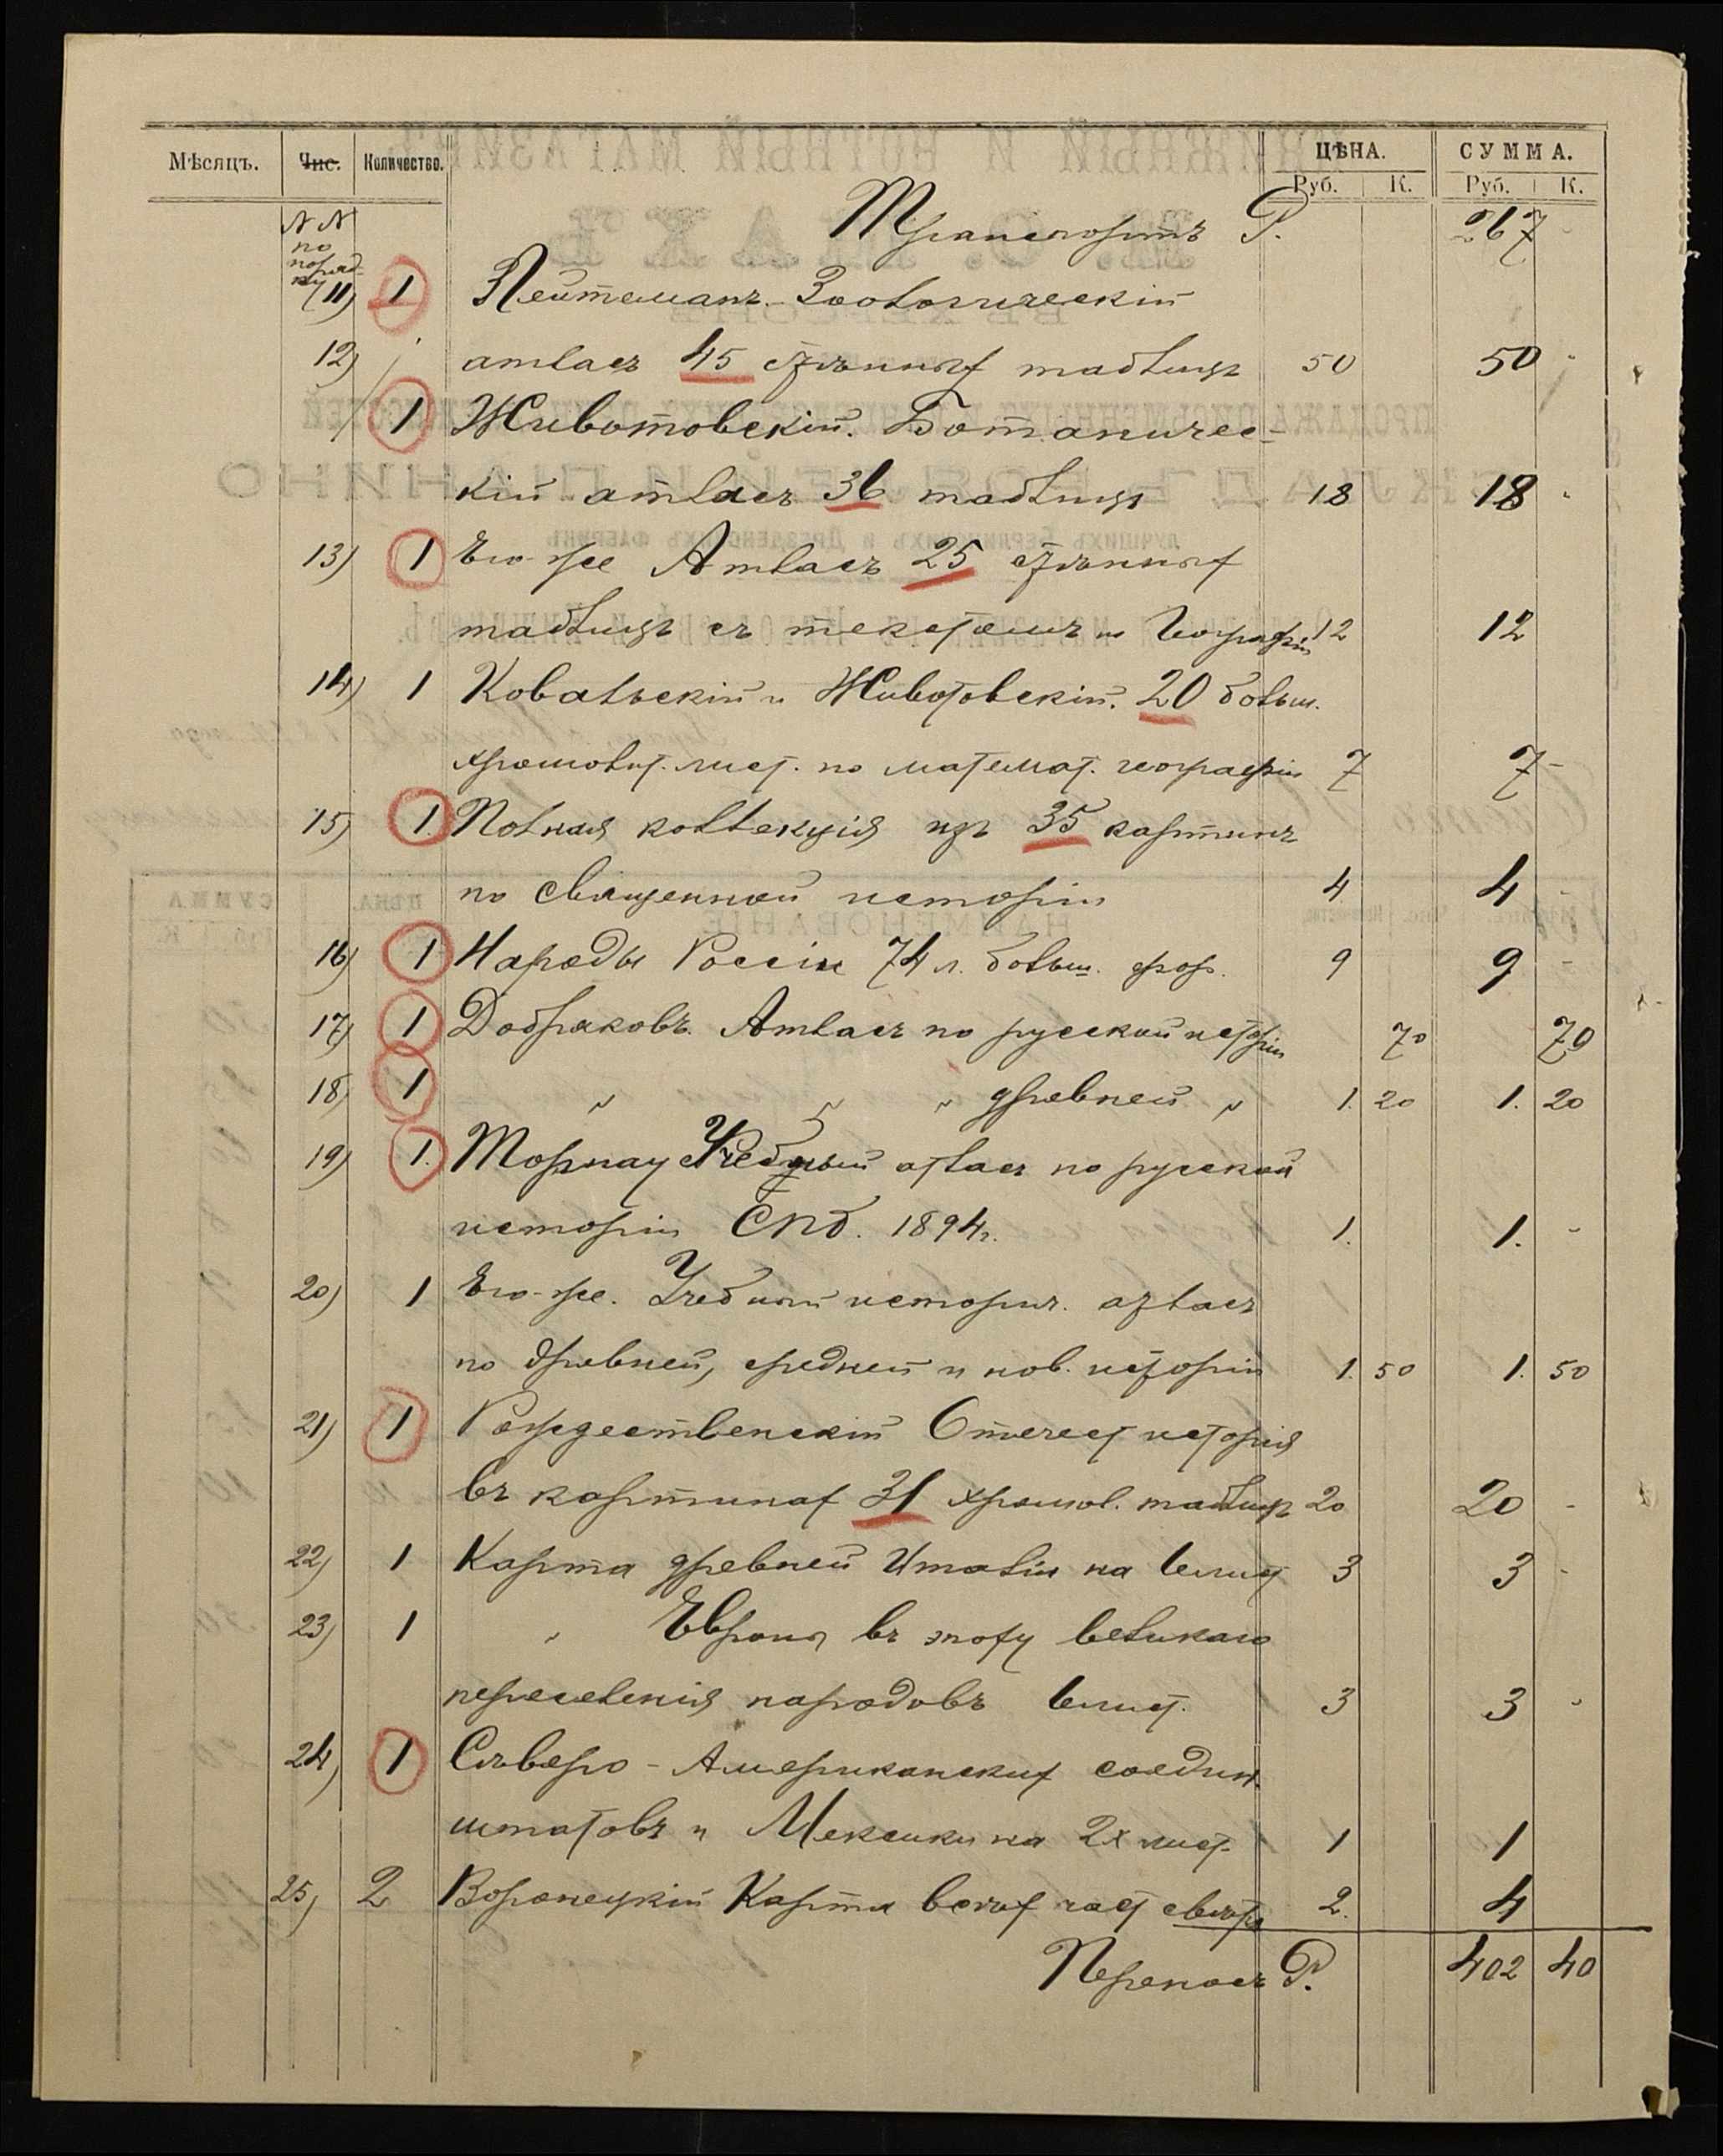 Мѣсяцъ. Чис. Количество. ЦѢНА. СУММА.
Руб. К. Руб. К.
Транспортъ Р. 267
NN по порядку
11) 1 Лейтеманъ. Зоологическій
12) атласъ 45 стѣнныхъ таблицъ 50 50
1 Животовскій. Ботаничес-
кій атласъ 36 таблицъ 18 18
13) 1 Его-же Атласъ 25 стѣнныхъ
таблицъ съ текстомъ по Географіи 12 12
14) 1 Ковальскій и Животовскій. 20 больш.
хромолит. лист. по математ. географіи 7 7
15) 1. Полная коллекція изъ 35 картинъ
по священной исторіи 4 4
16) 1 Народы Россіи 74 л. больш. фор. 9 9
17) 1 Добряковъ. Атласъ по русской исторіи 70 70
18) 1 " " " древней " 1. 20 1. 20
19) 1. Торнау Учебный атласъ по русской
исторіи СПб. 1894г. 1. 1.
20) 1 Его-же. Учебный историч. атласъ
по древней, средней и нов. исторіи 1. 50 1. 50
21) 1 Рождественскій Отечест исторія
въ картинахъ 31 хромол. таблицъ 20 20
22) 1 Карта древней Италіи на лист 3 3
23) 1 " Европы въ эпоху великаго
переселенія народовъ лист. 3 3
24) 1 Сѣверо-Американскихъ соедин.
штатовъ и Мексики на 2х лист. 1 1
25) 2 Воронецкій Карта всѣхъ част свѣта 2. 4
Переносъ Р. 402 40